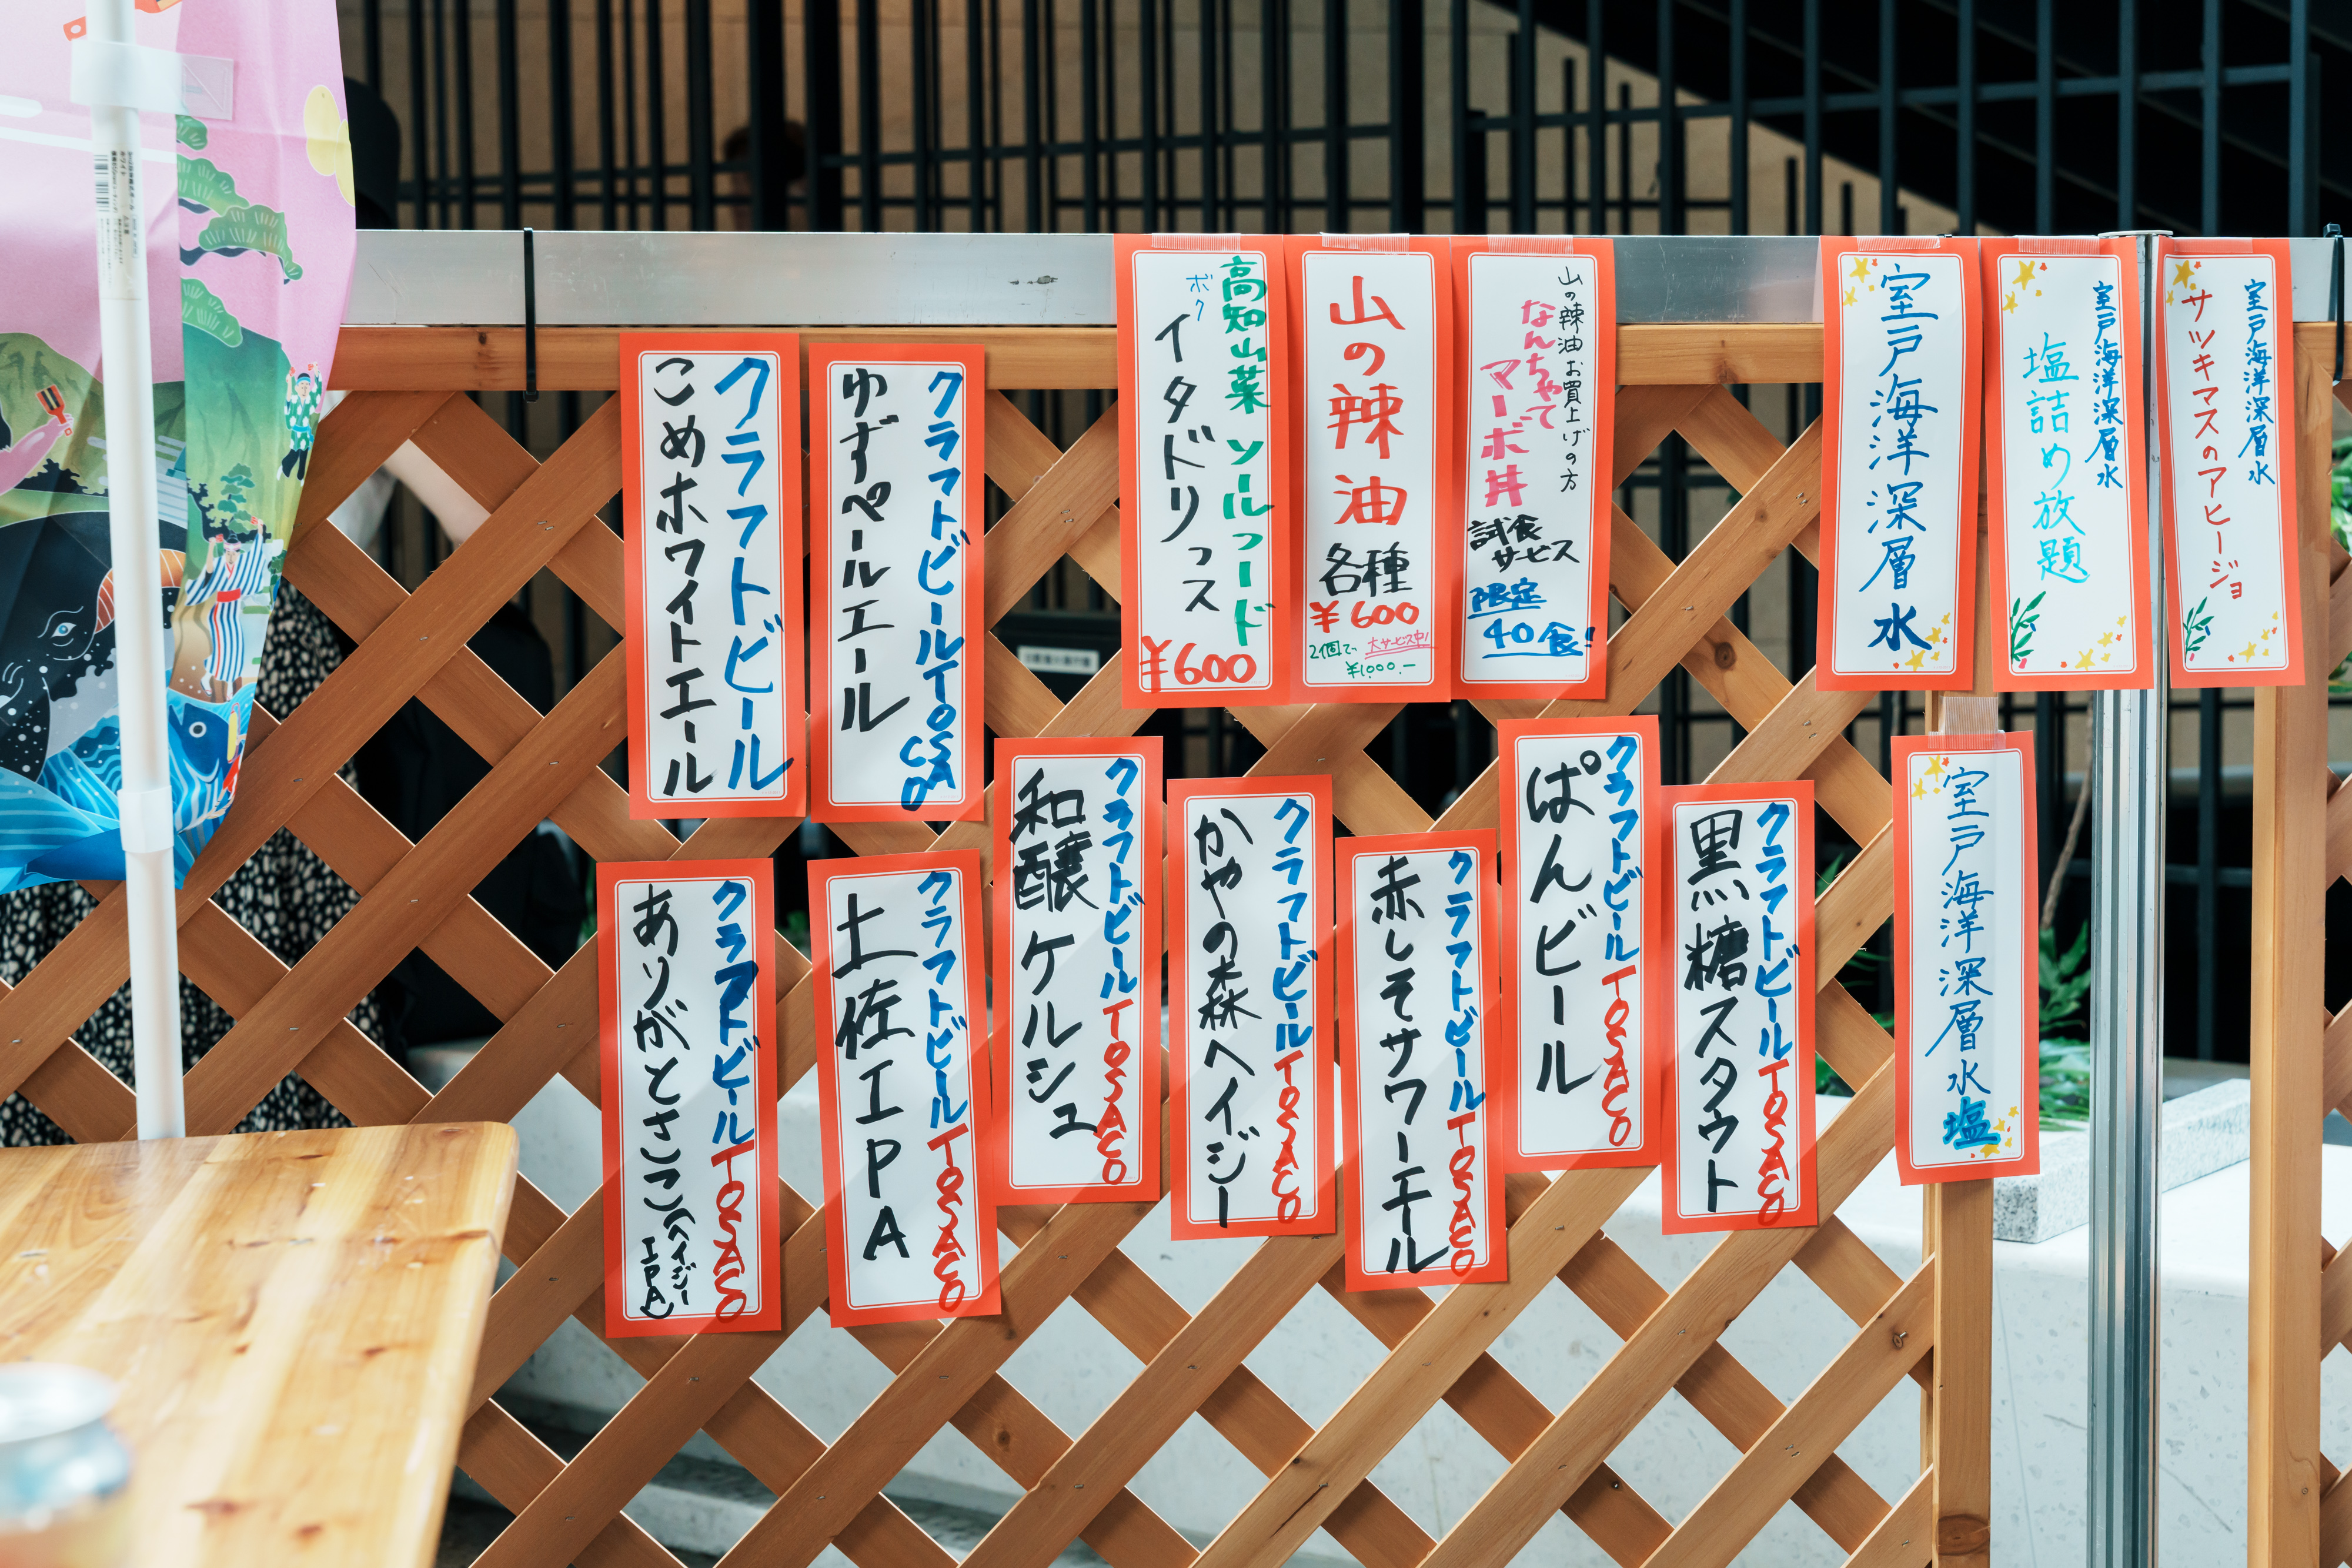 クラフトビール
こめホワイトエール
クラフトビールTOSACO
ゆずペールエール
高知山菜 ソールフード
ボク
イタドリっス
¥600
山の辣油
各種
¥600
2個で、大サービス中!
¥1,000.—
山の辣油お買上げの方
なんちゃって
マーボ丼
試食
サービス
限定
40食!
室戸海洋深層水
室戸海洋深層水
塩詰め放題
室戸海洋深層水
サツキマスのアヒージョ
クラフトビールTOSACO
ありがとさこ(ヘイジーIPA)
クラフトビールTOSACO
土佐IPA
クラフトビールTOSACO
和醸ケルシュ
クラフトビールTOSACO
かやの森ヘイジー
クラフトビールTOSACO
赤しそサワーエール
クラフトビールTOSACO
ぱんビール
クラフトビールTOSACO
黒糖スタウト
室戸海洋深層水塩